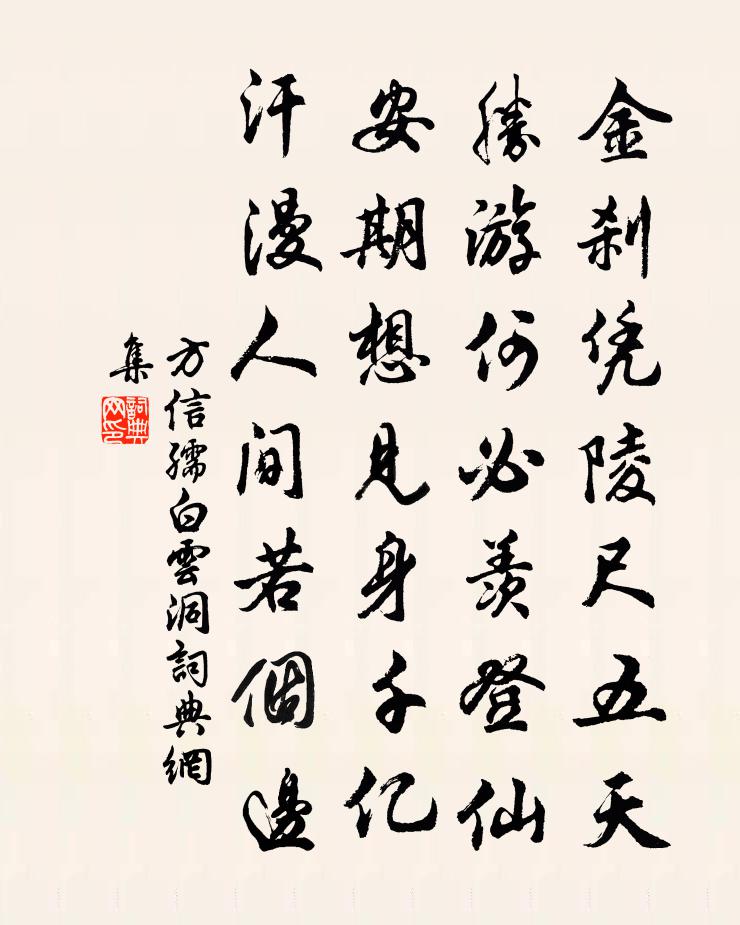 金刹凭陵尺五天
勝游何必羨登仙
安期想見身千亿
汗漫人間若個邊
方信孺白雲洞詞典網
集
詞典
网印